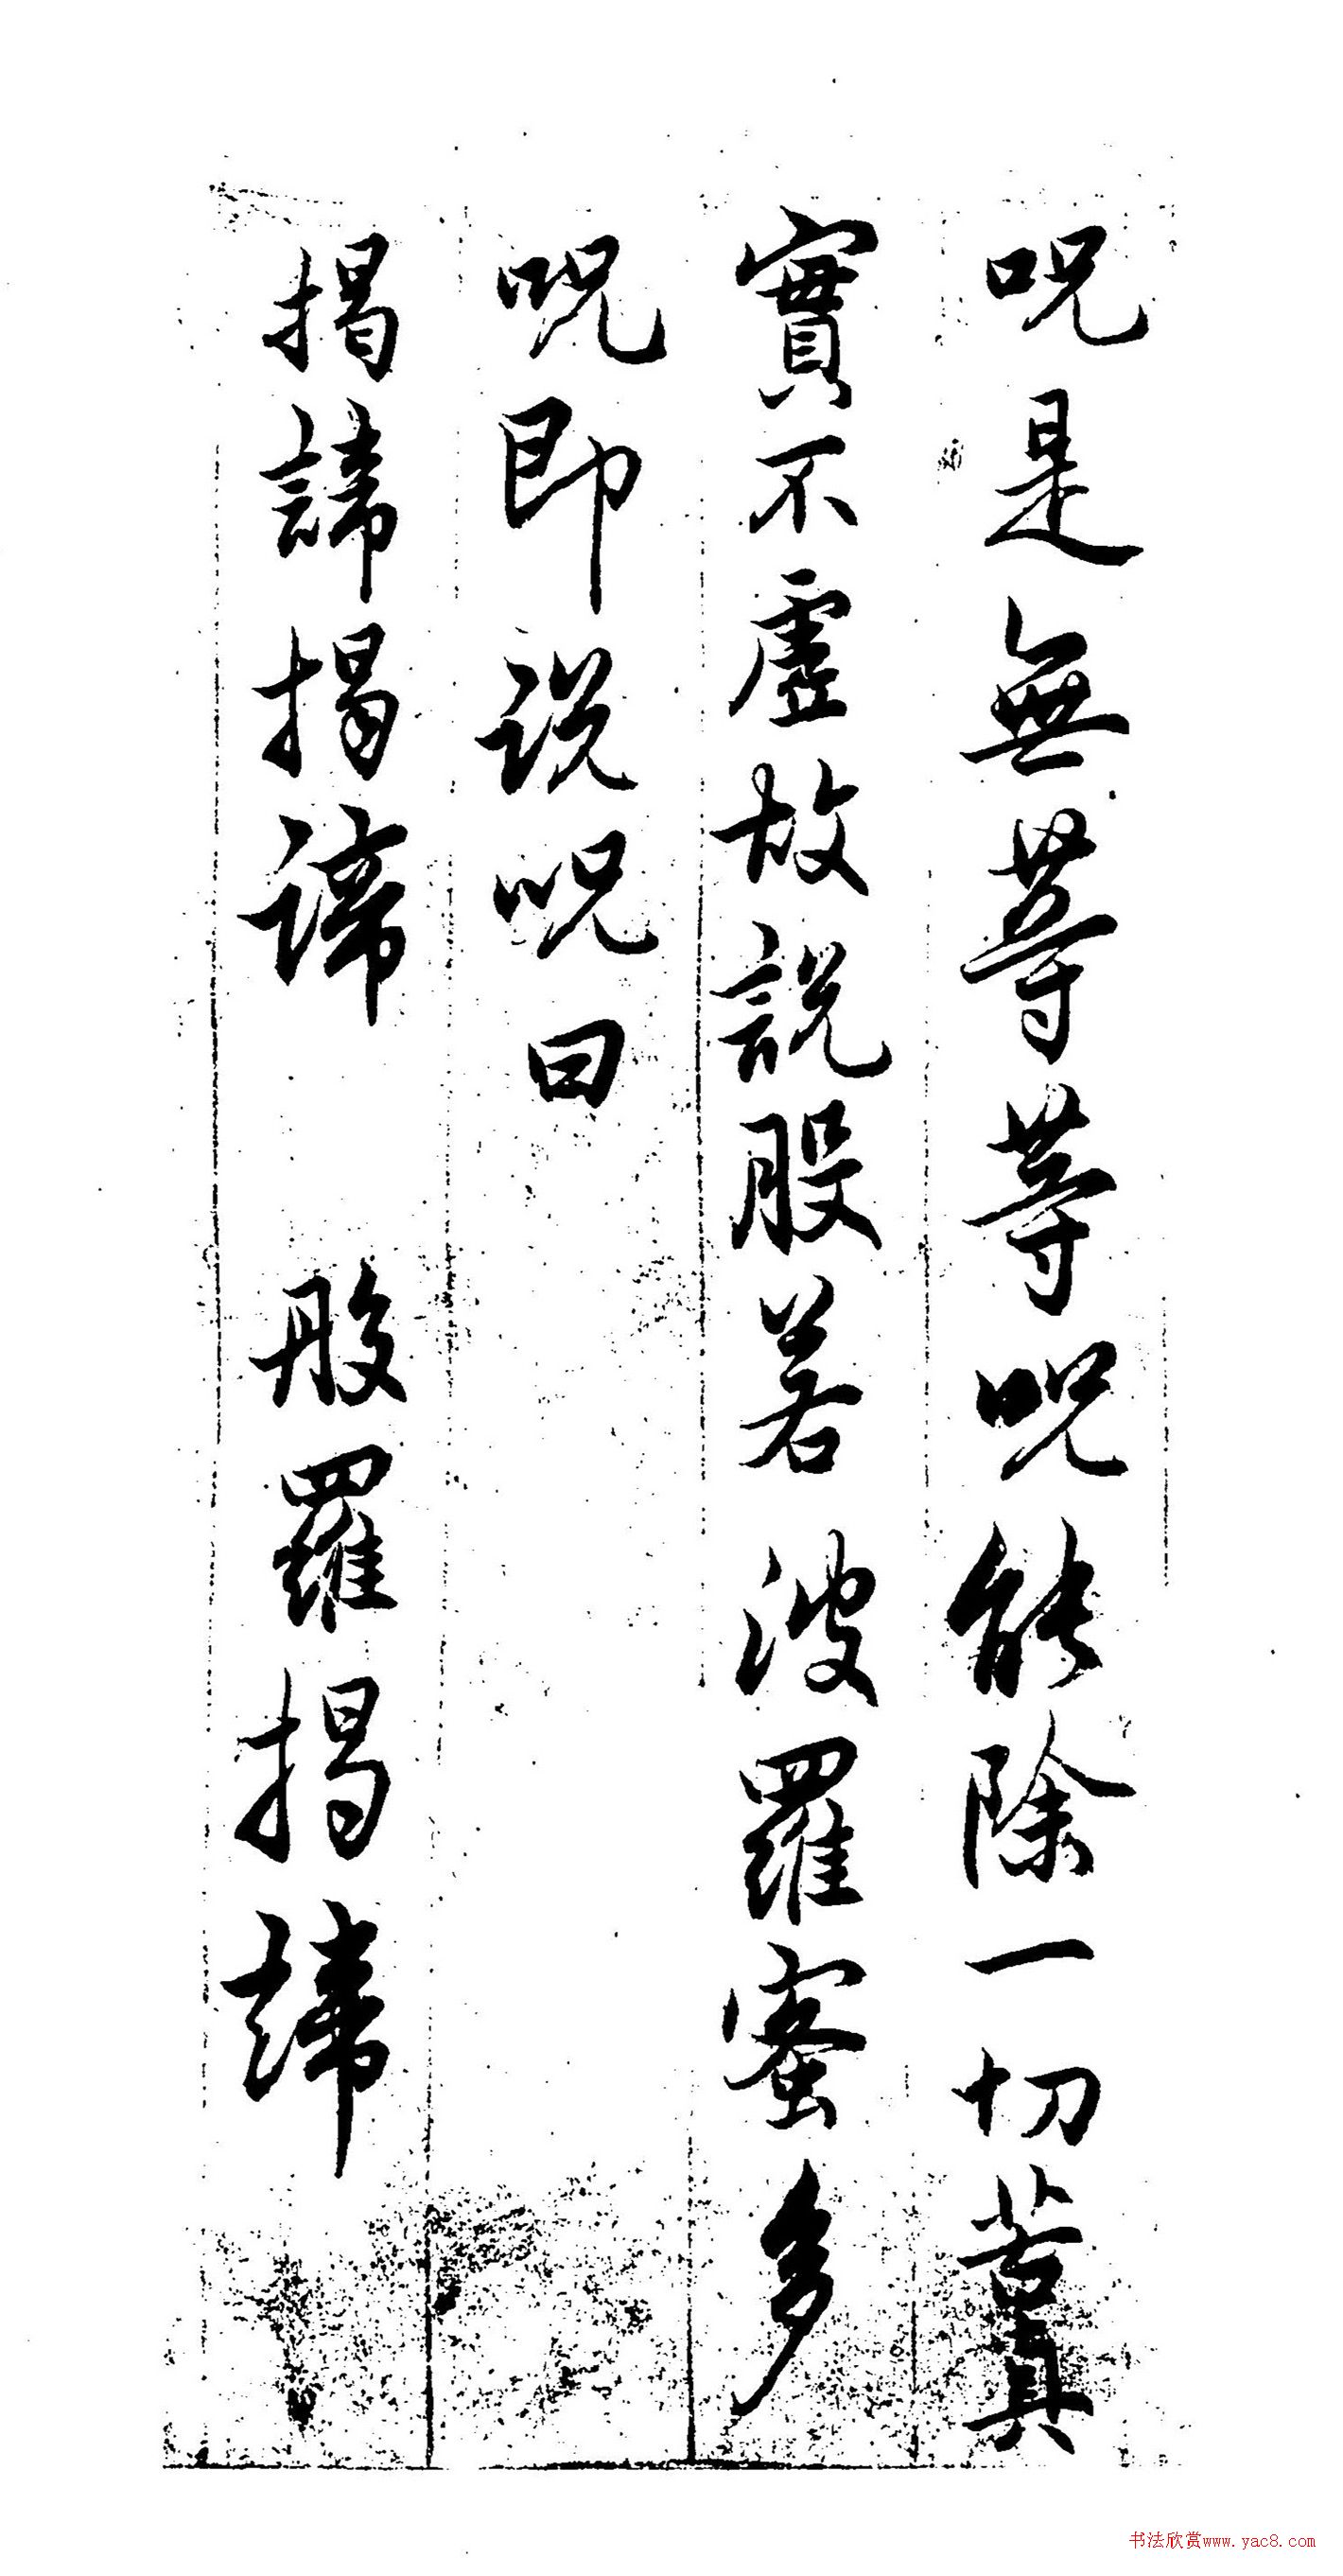 呪是無等等呪能除一切苦真
實不虛故說般若波羅蜜多
呪即説呪曰
揭諦揭諦 般羅揭諦
书法欣赏www.yac8.com